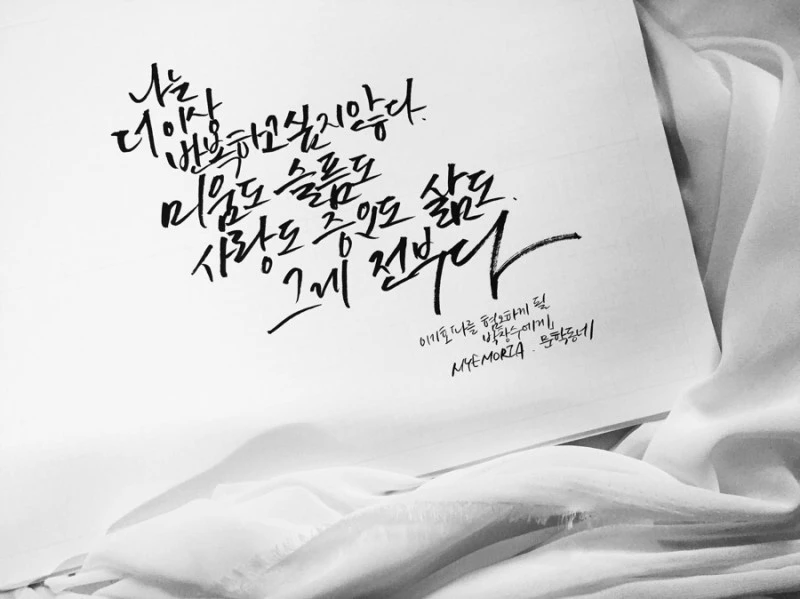 나는
더 이상
반복하고 싶지 않다.
미움도 슬픔도
사랑도 증오도 삶도.
그게 전부다
이기호 「나를 혐오하게 될
박창수에게」
MYEMORIA. 문학동네